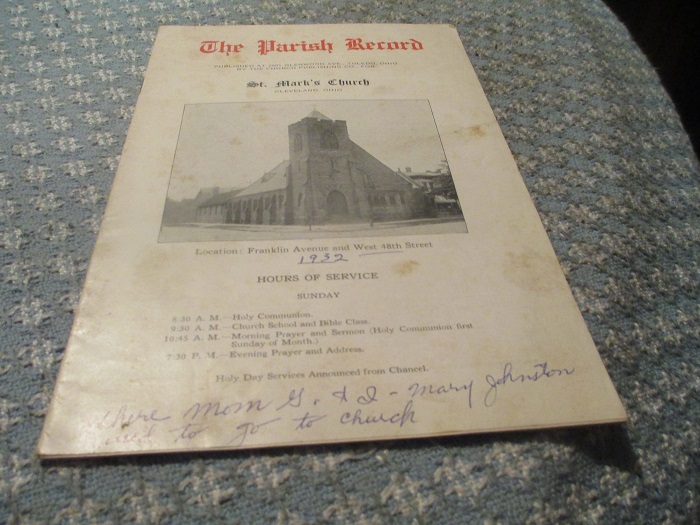 The Parish Record
PUBLISHED AT
OHIO
BY THE CHURCH PUBLISHING CO. FOR
St. Mark's Church
CLEVELAND, OHIO
Location: Franklin Avenue and West 48th Street
1932
HOURS OF SERVICE
SUNDAY
8:30 A. M.—Holy Communion.
9:30 A. M.—Church School and Bible Class.
10:45 A. M.—Morning Prayer and Sermon (Holy Communion first
Sunday of Month.)
7:30 P. M.—Evening Prayer and Address.
Holy Day Services Announced from Chancel.
where Mom G. & I - Mary Johnston
used to go to church